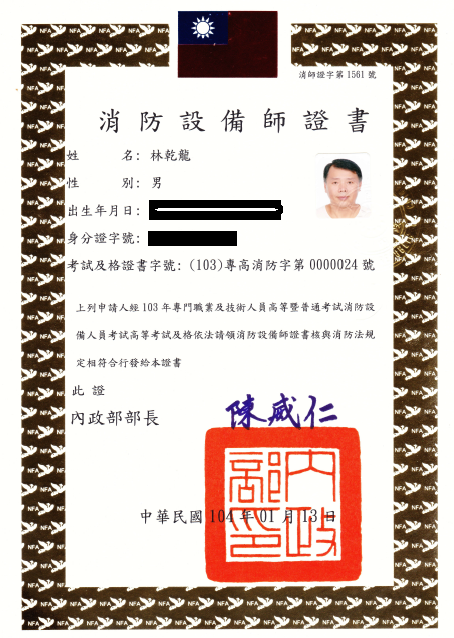 消師證字第 1561 號
消防設備師證書
姓　　名: 林乾龍
性　　別: 男
出生年月日:
身分證字號:
考試及格證書字號: (103)專高消防字第 0000024 號
上列申請人經 103 年專門職業及技術人員高等暨普通考試消防設
備人員考試高等考試及格依法請領消防設備師證書核與消防法規
定相符合行發給本證書
此 證
內政部部長 陳威仁
內政部印
中華民國 104 年 01 月 13 日
NFA